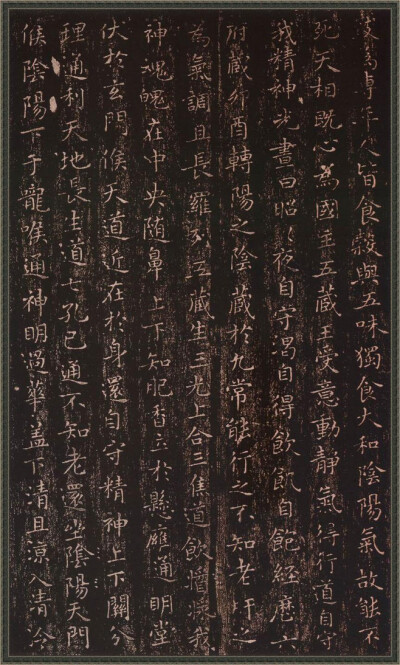 為專年人皆食穀與五味獨食大和陰陽氣故能不
死天相既心為國主五藏王受意動靜氣得行道自守
我精神光晝日昭〻夜自守渴自得飲飢自飽經歷六
府藏卯酉轉陽之陰藏於九常能行之不知老肝之
為氣調且長羅列五藏生三光上合三焦道飲醬漿我
神魂魄在中央隨鼻上下知肥香立於懸膺通明堂
伏於玄門候天道近在於身還自守精神上下關分
理通利天地長生道七孔已通不知老還坐陰陽天門
候陰陽下于嚨喉通神明過華蓋下清且涼入清泠